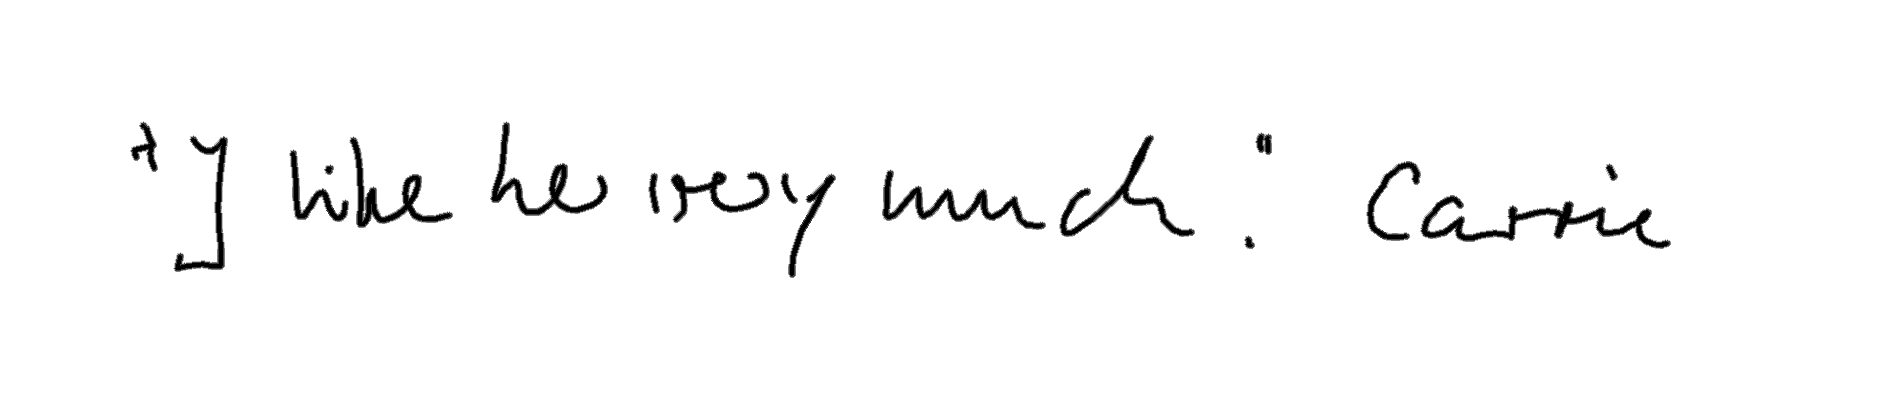 "I like he very much." Carrie